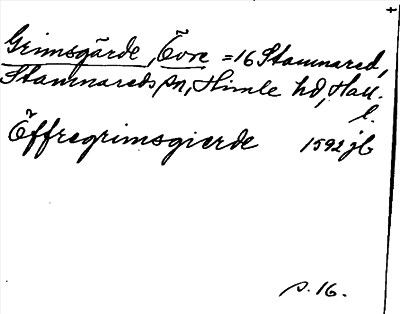 Grimsgärde, Övre = 16 Stamnared,
Stamnareds sn, Himle hd, Hall.
l.
Öffregrimsgierde 1592 jb
s. 16.